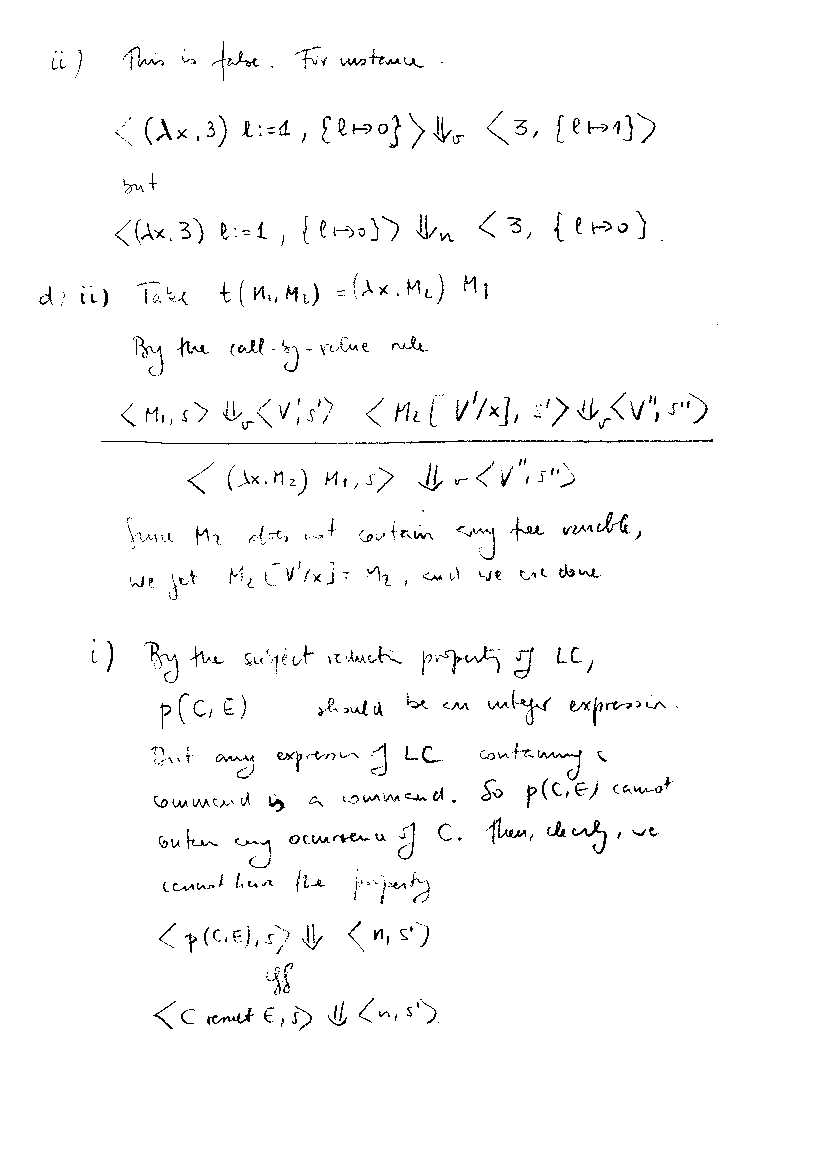 ii) This is false. For instance.
< (λx.3) l:=1 , {l↦0}> ⇓v <3, {l↦1}>
but
<(λx.3) l:=1 , {l↦0}> ⇓n <3, {l↦0}.
d) ii) Take t(M1,M2) = (λx.M2) M1
By the call-by-value rule
<M1,s> ⇓v <V',s'> <M2[V'/x], s'> ⇓v <V'',s''>
< (λx.M2) M1,s> ⇓v <V'',s''>
Since M2 does not contain any free variable,
we get M2[V'/x] = M2, and we are done
i) By the subject reduction property of LC,
p(C,E) should be an integer expression.
But any expression of LC containing a
command is a command. So p(C,E) cannot
contain any occurrence of C. Then, clearly, we
cannot have the property
<p(C,E),s> ⇓ <n,s'>
iff
<C result E,s> ⇓ <n,s'>.